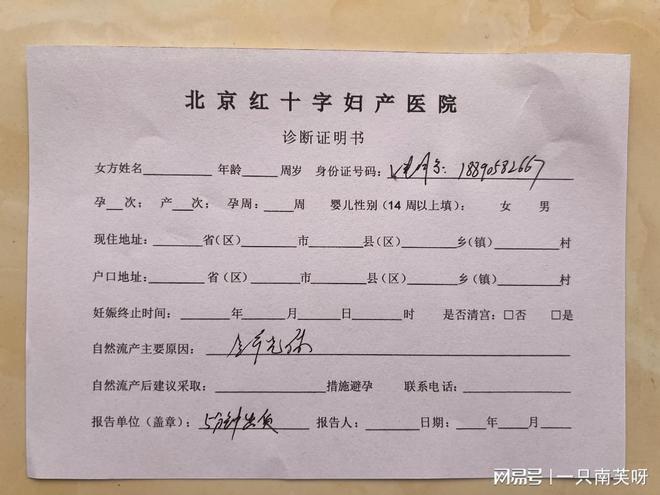 北京红十字妇产医院
诊断证明书
女方姓名________ 年龄____周岁 身份证号码: 18890582667
孕__次; 产__次; 孕周:____周 婴儿性别(14周以上填): 女 男
现住地址:________省(区)________市________县(区)________乡(镇)________村
户口地址:________省(区)________市________县(区)________乡(镇)________村
妊娠终止时间:________年______月______日______时 是否清宫:□否 □是
自然流产主要原因:
自然流产后建议采取:________________措施避孕 联系电话:________________
报告单位(盖章):5分钟出货 报告人:______日期:____年____月____
网易号 | 一只南芙呀